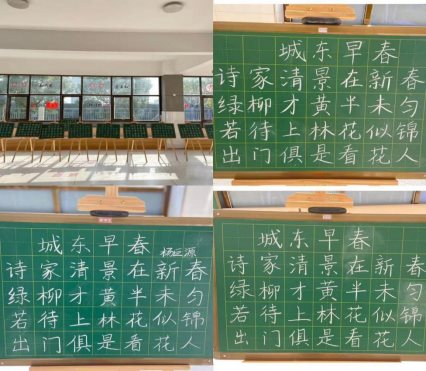 城东早春
诗家清景在新春
绿柳才黄半未匀
若待上林花似锦
出门俱是看花人
城东早春
杨巨源
诗家清景在新春
绿柳才黄半未匀
若待上林花似锦
出门俱是看花人
城东早春
诗家清景在新春
绿柳才黄半未匀
若待上林花似锦
出门俱是看花人